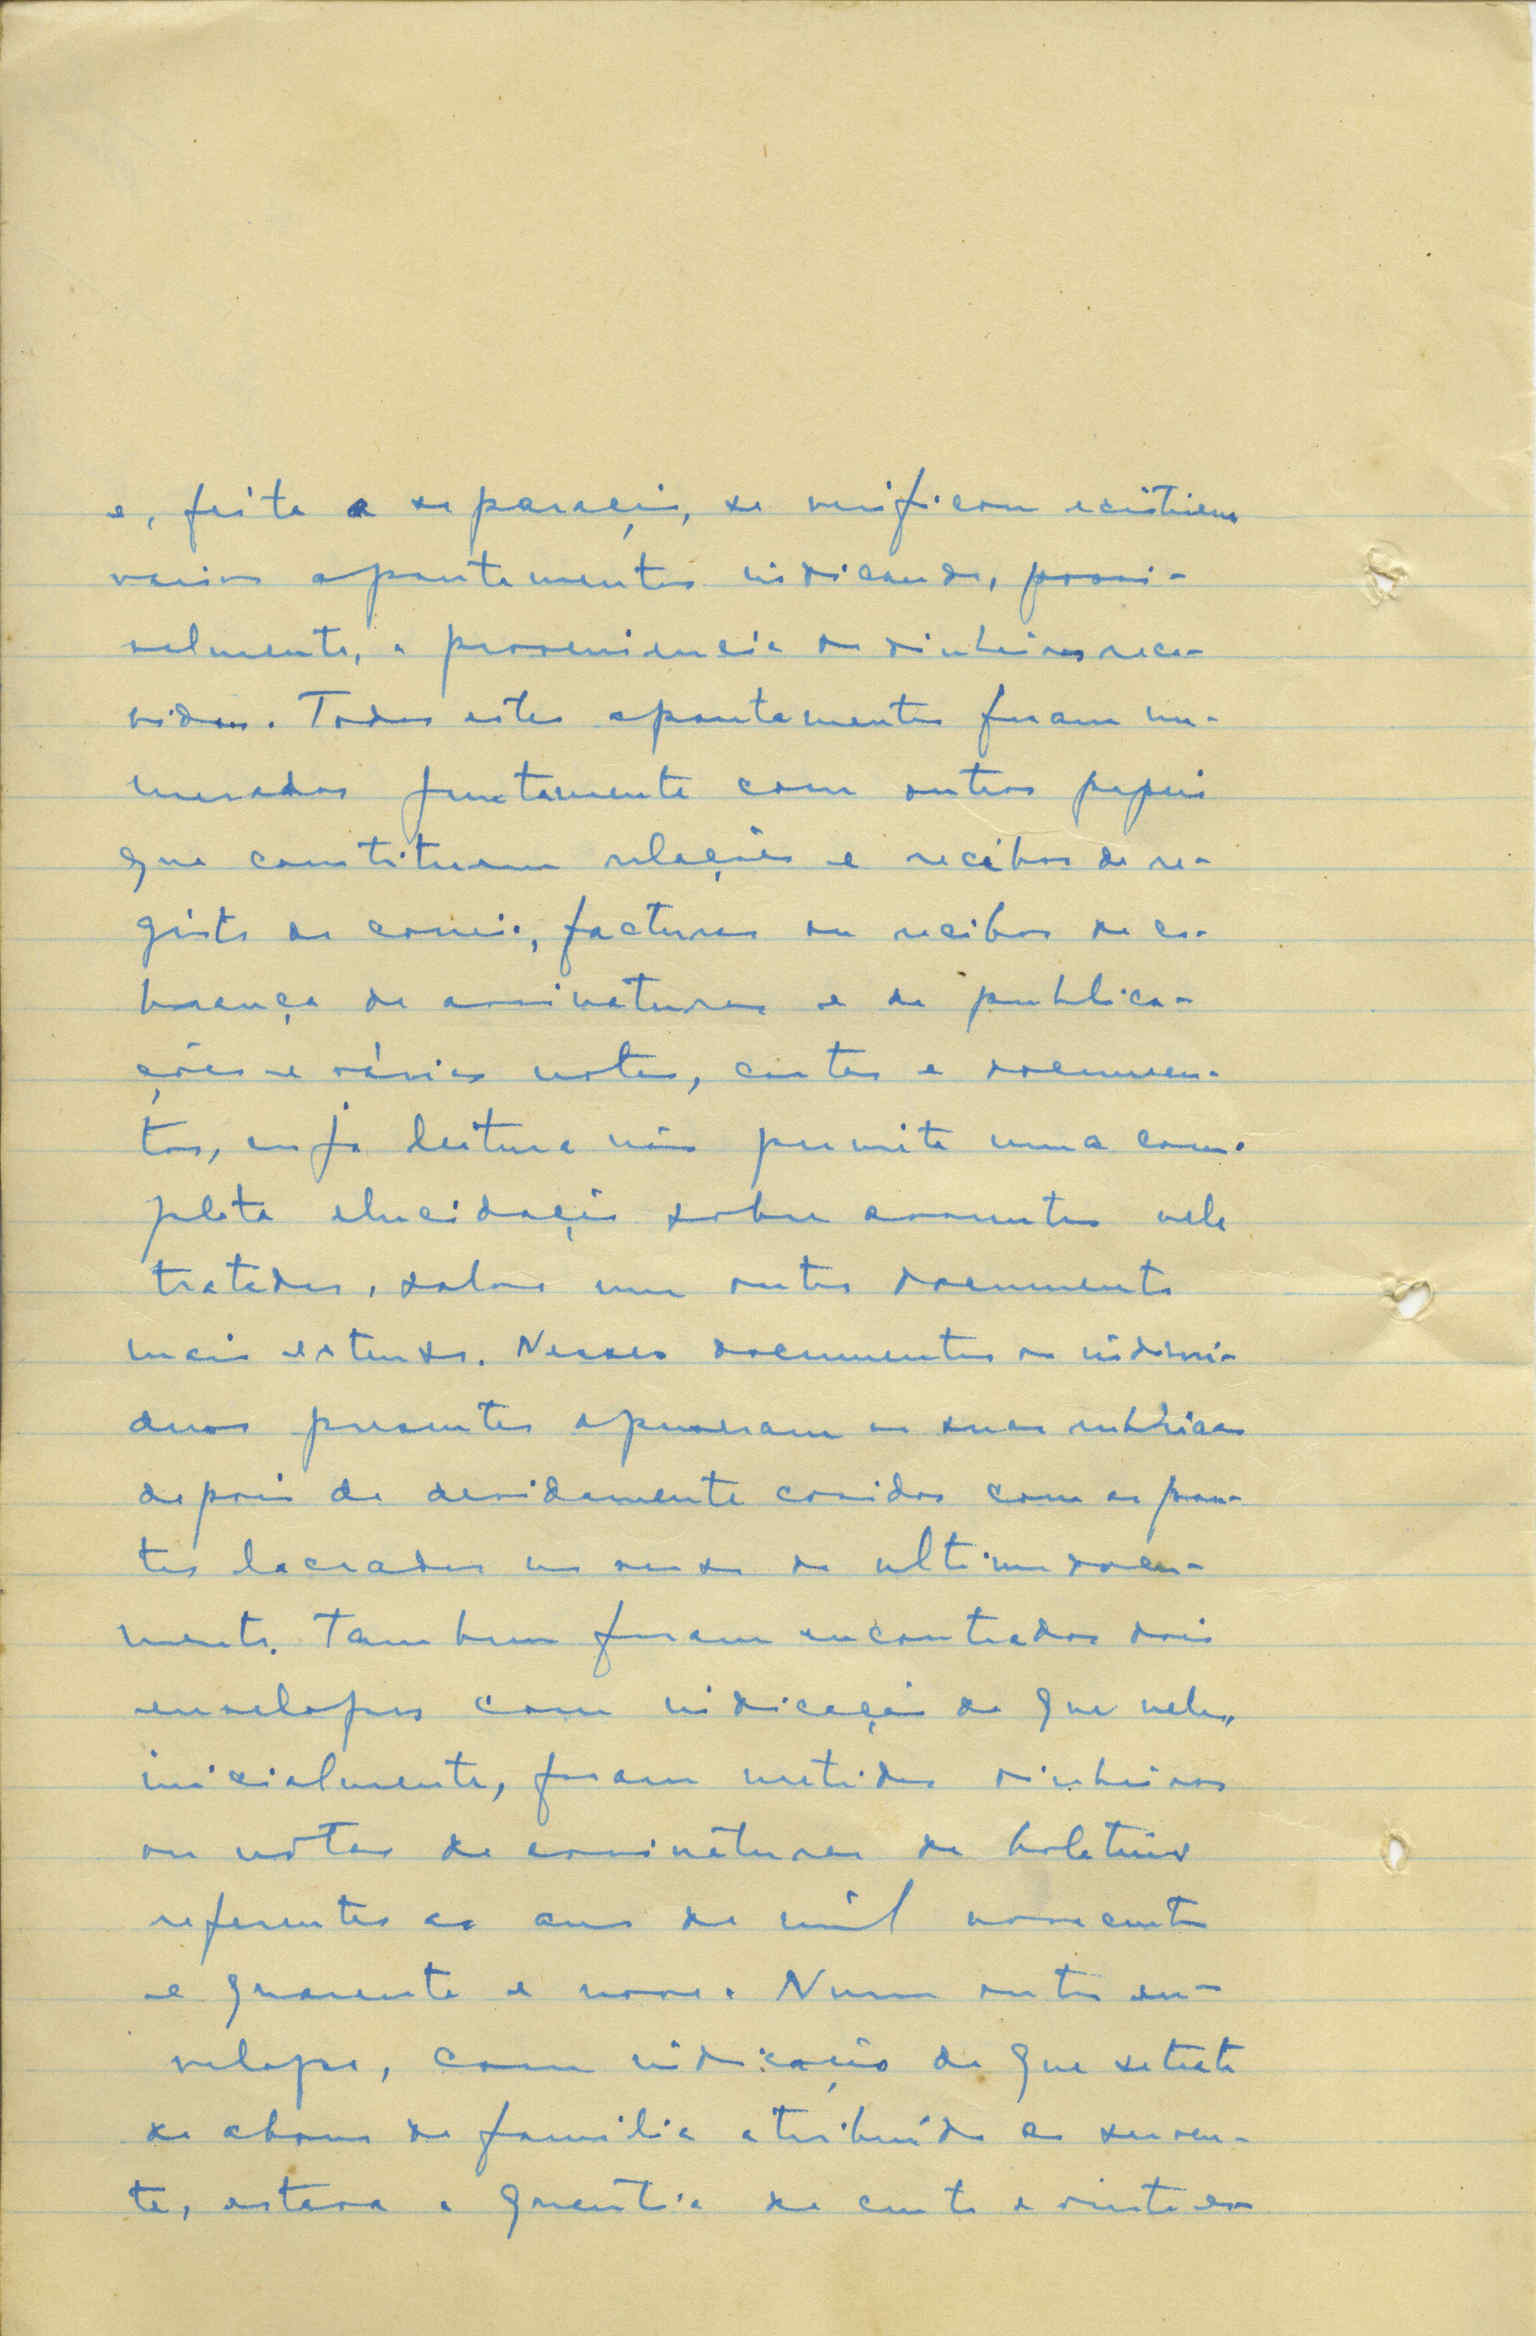 e, feita a separação, se verificou existirem
varios apontamentos indicando, possi-
velmente, a proveniencia de dinheiros rece-
bidos. Todos estes apontamentos foram nu-
merados juntamente com outros papeis
que constituem relações e recibos de re-
gisto de correio, facturas ou recibos de co-
brança de assinaturas e de publica-
ções e várias notas, cartas e documen-
tos, cuja leitura não permite uma com-
pleta elucidação sobre assuntos nele
tratados, salvo um outro documento
mais extenso. Nesses documentos os indivi-
duos presentes apuseram as suas rubricas
depois de devidamente cosidos com as pon-
tas lacradas no verso do ultimo docu-
mento. Tambem foram encontrados dois
envelopes com indicação de que neles,
inicialmente, foram metidos dinheiros
ou notas de assinaturas de boletins
referentes ao ano de mil novecentos
e quarenta e nove. Num outro en-
velope, com indicação de que se trata
de abono de familia atribuído ao serven-
te, estava a quantia de cento e vinte es-